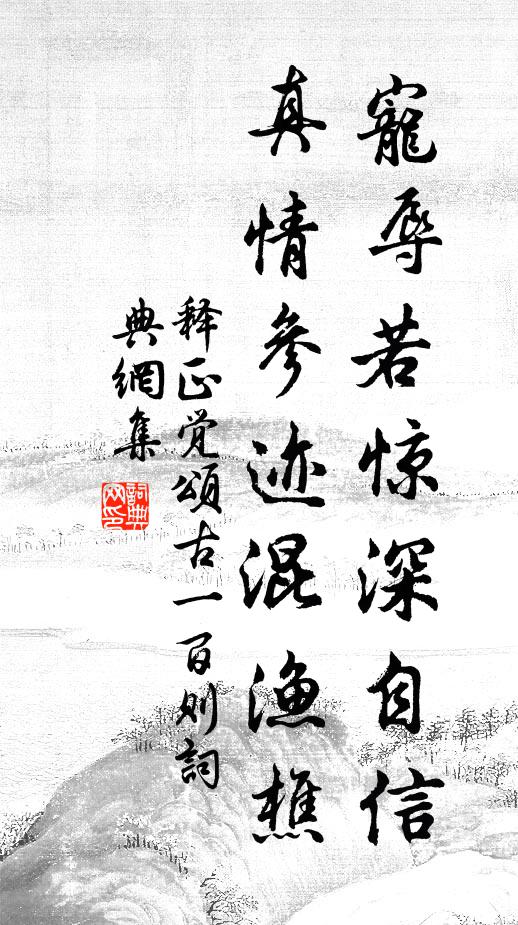 寵辱若惊深自信
真情參迹混渔樵
释正觉頌古一百则詞
典網集
詞典
网印